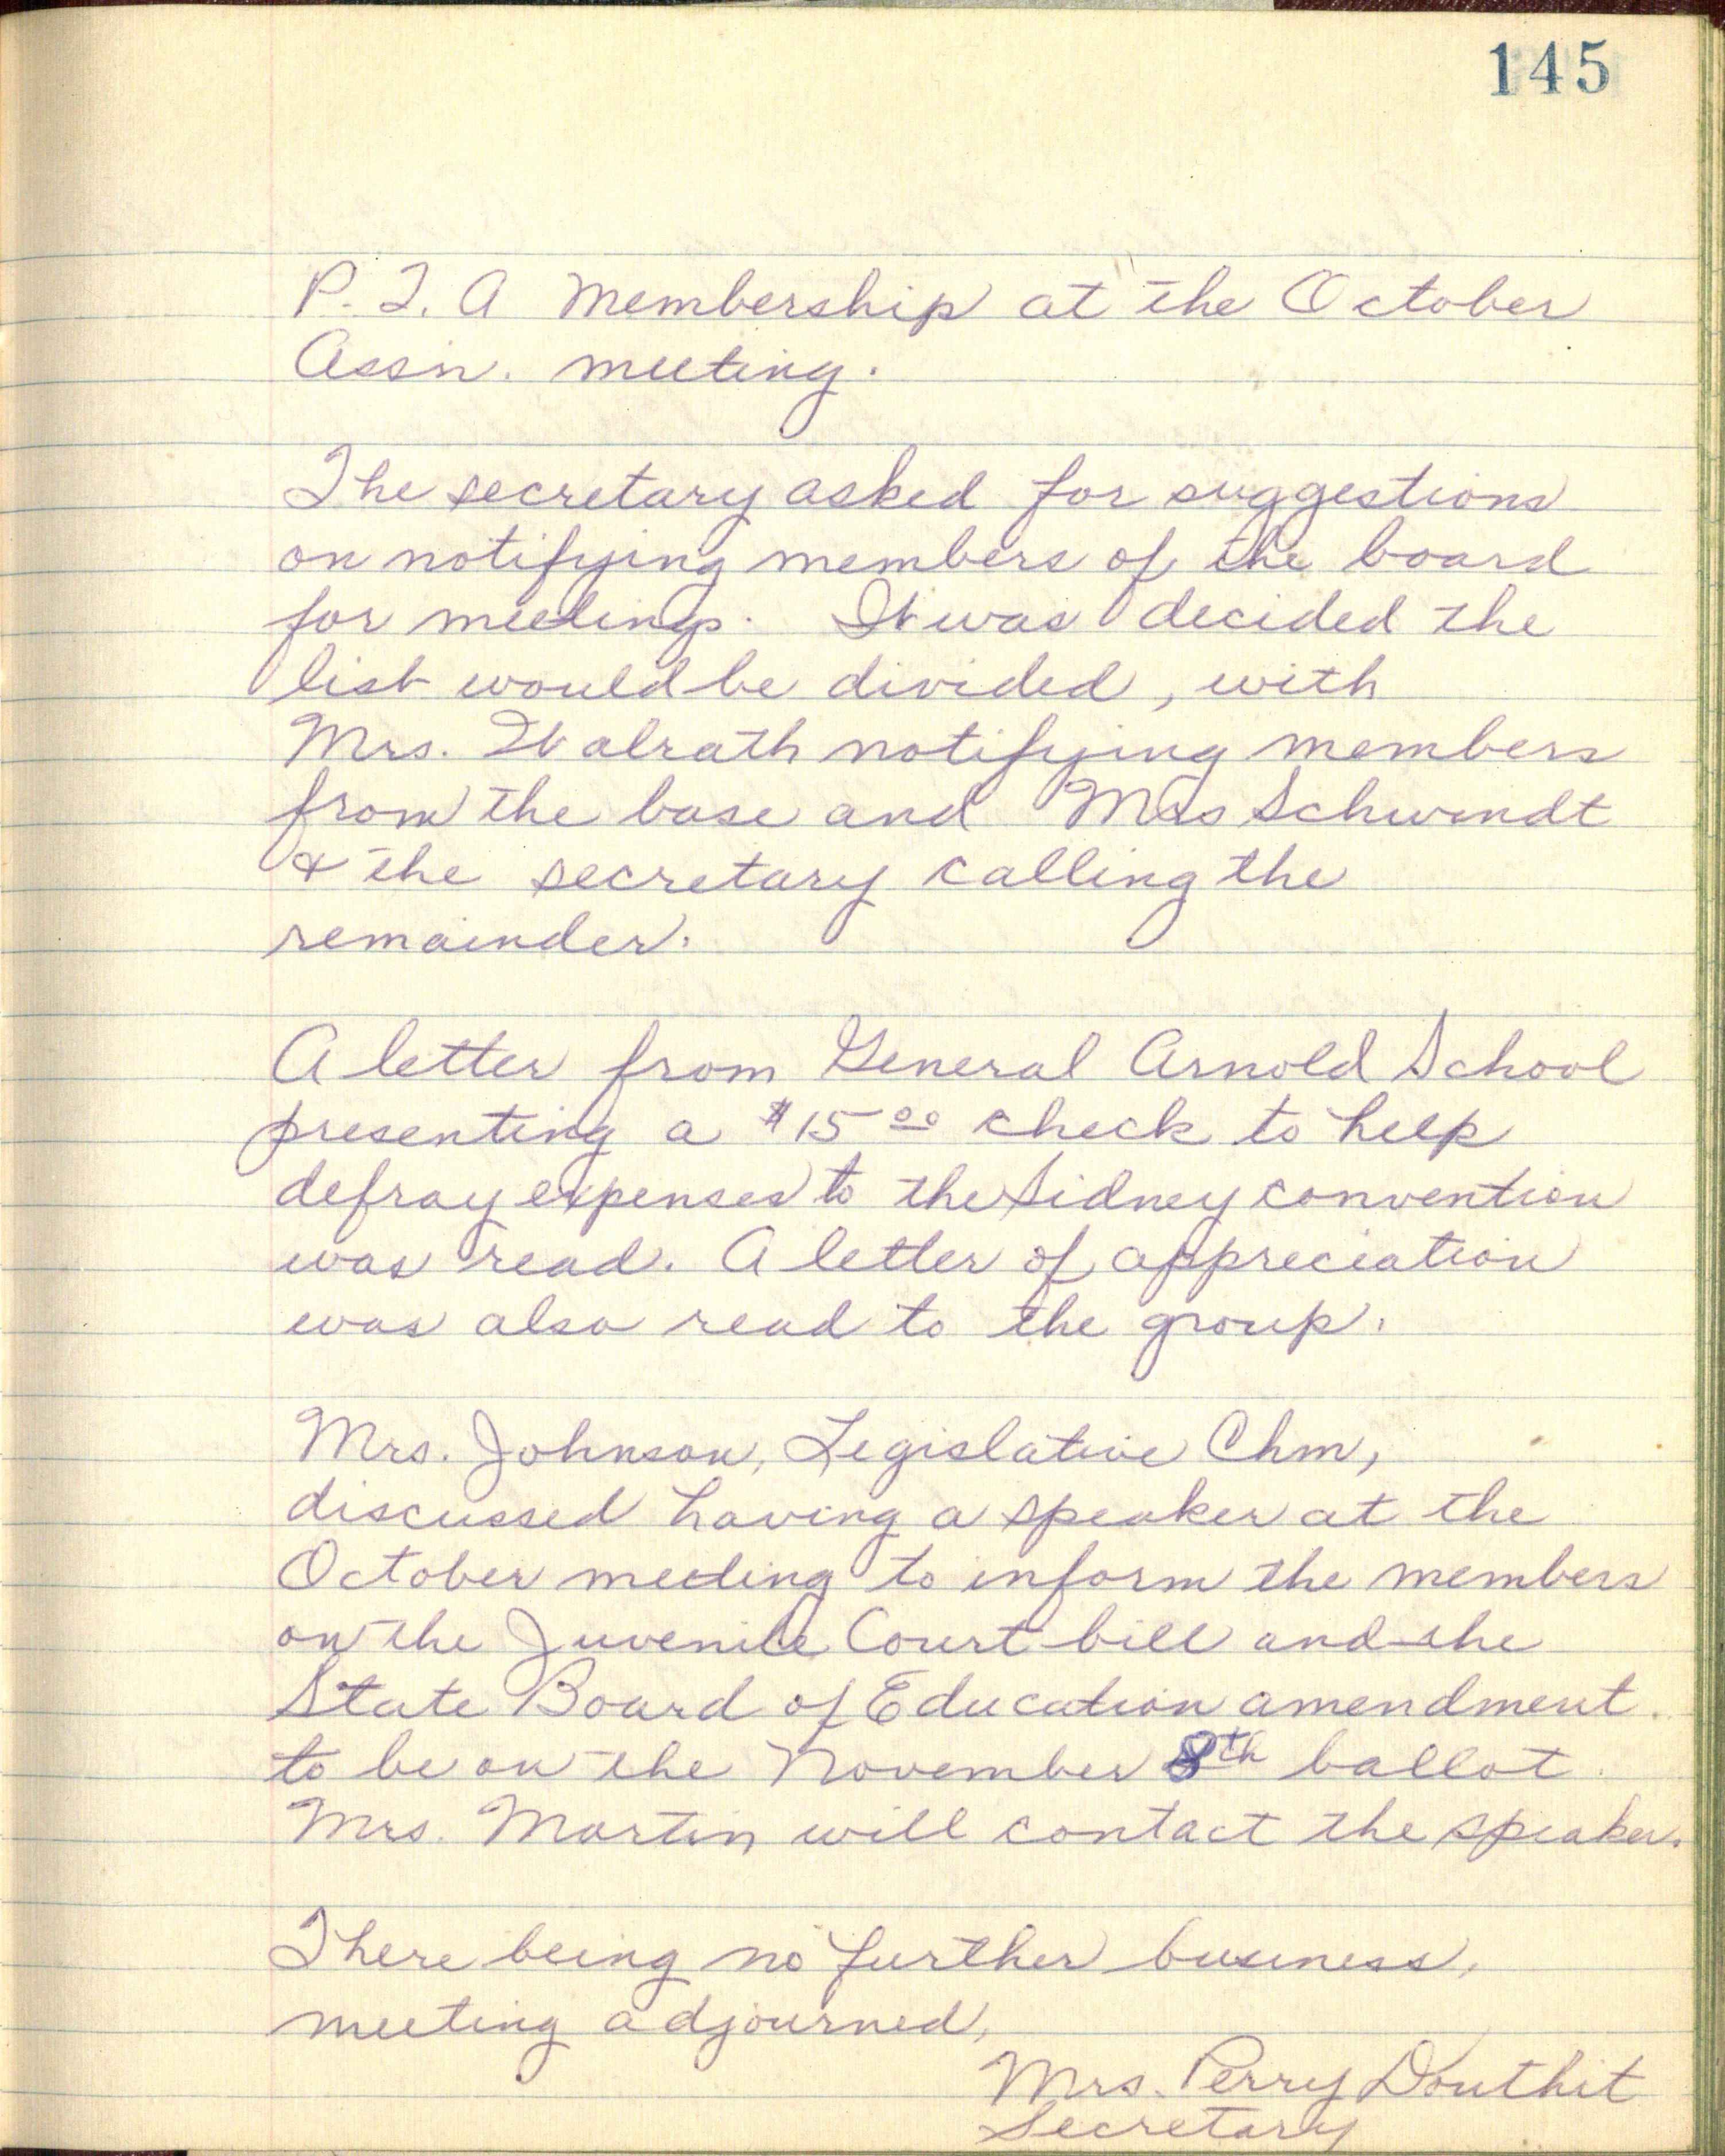 145
P. T. A Membership at the October
Assn. meeting.
The secretary asked for suggestions
on notifying members of the board
for meetings. It was decided the
list would be divided, with
Mrs. Walrath notifying members
from the base and Mrs Schwindt
& the secretary calling the
remainder.
A letter from General Arnold School
presenting a $15 00 check to help
defray expenses to the Sidney convention
was read. A letter of appreciation
was also read to the group.
Mrs. Johnson, Legislative Chm,
discussed having a speaker at the
October meeting to inform the members
on the Juvenile Court bill and the
State Board of Education amendment.
to be on the November 8th ballot.
Mrs. Martin will contact the speaker.
There being no further business,
meeting adjourned,
Mrs. Perry Douthit
Secretary